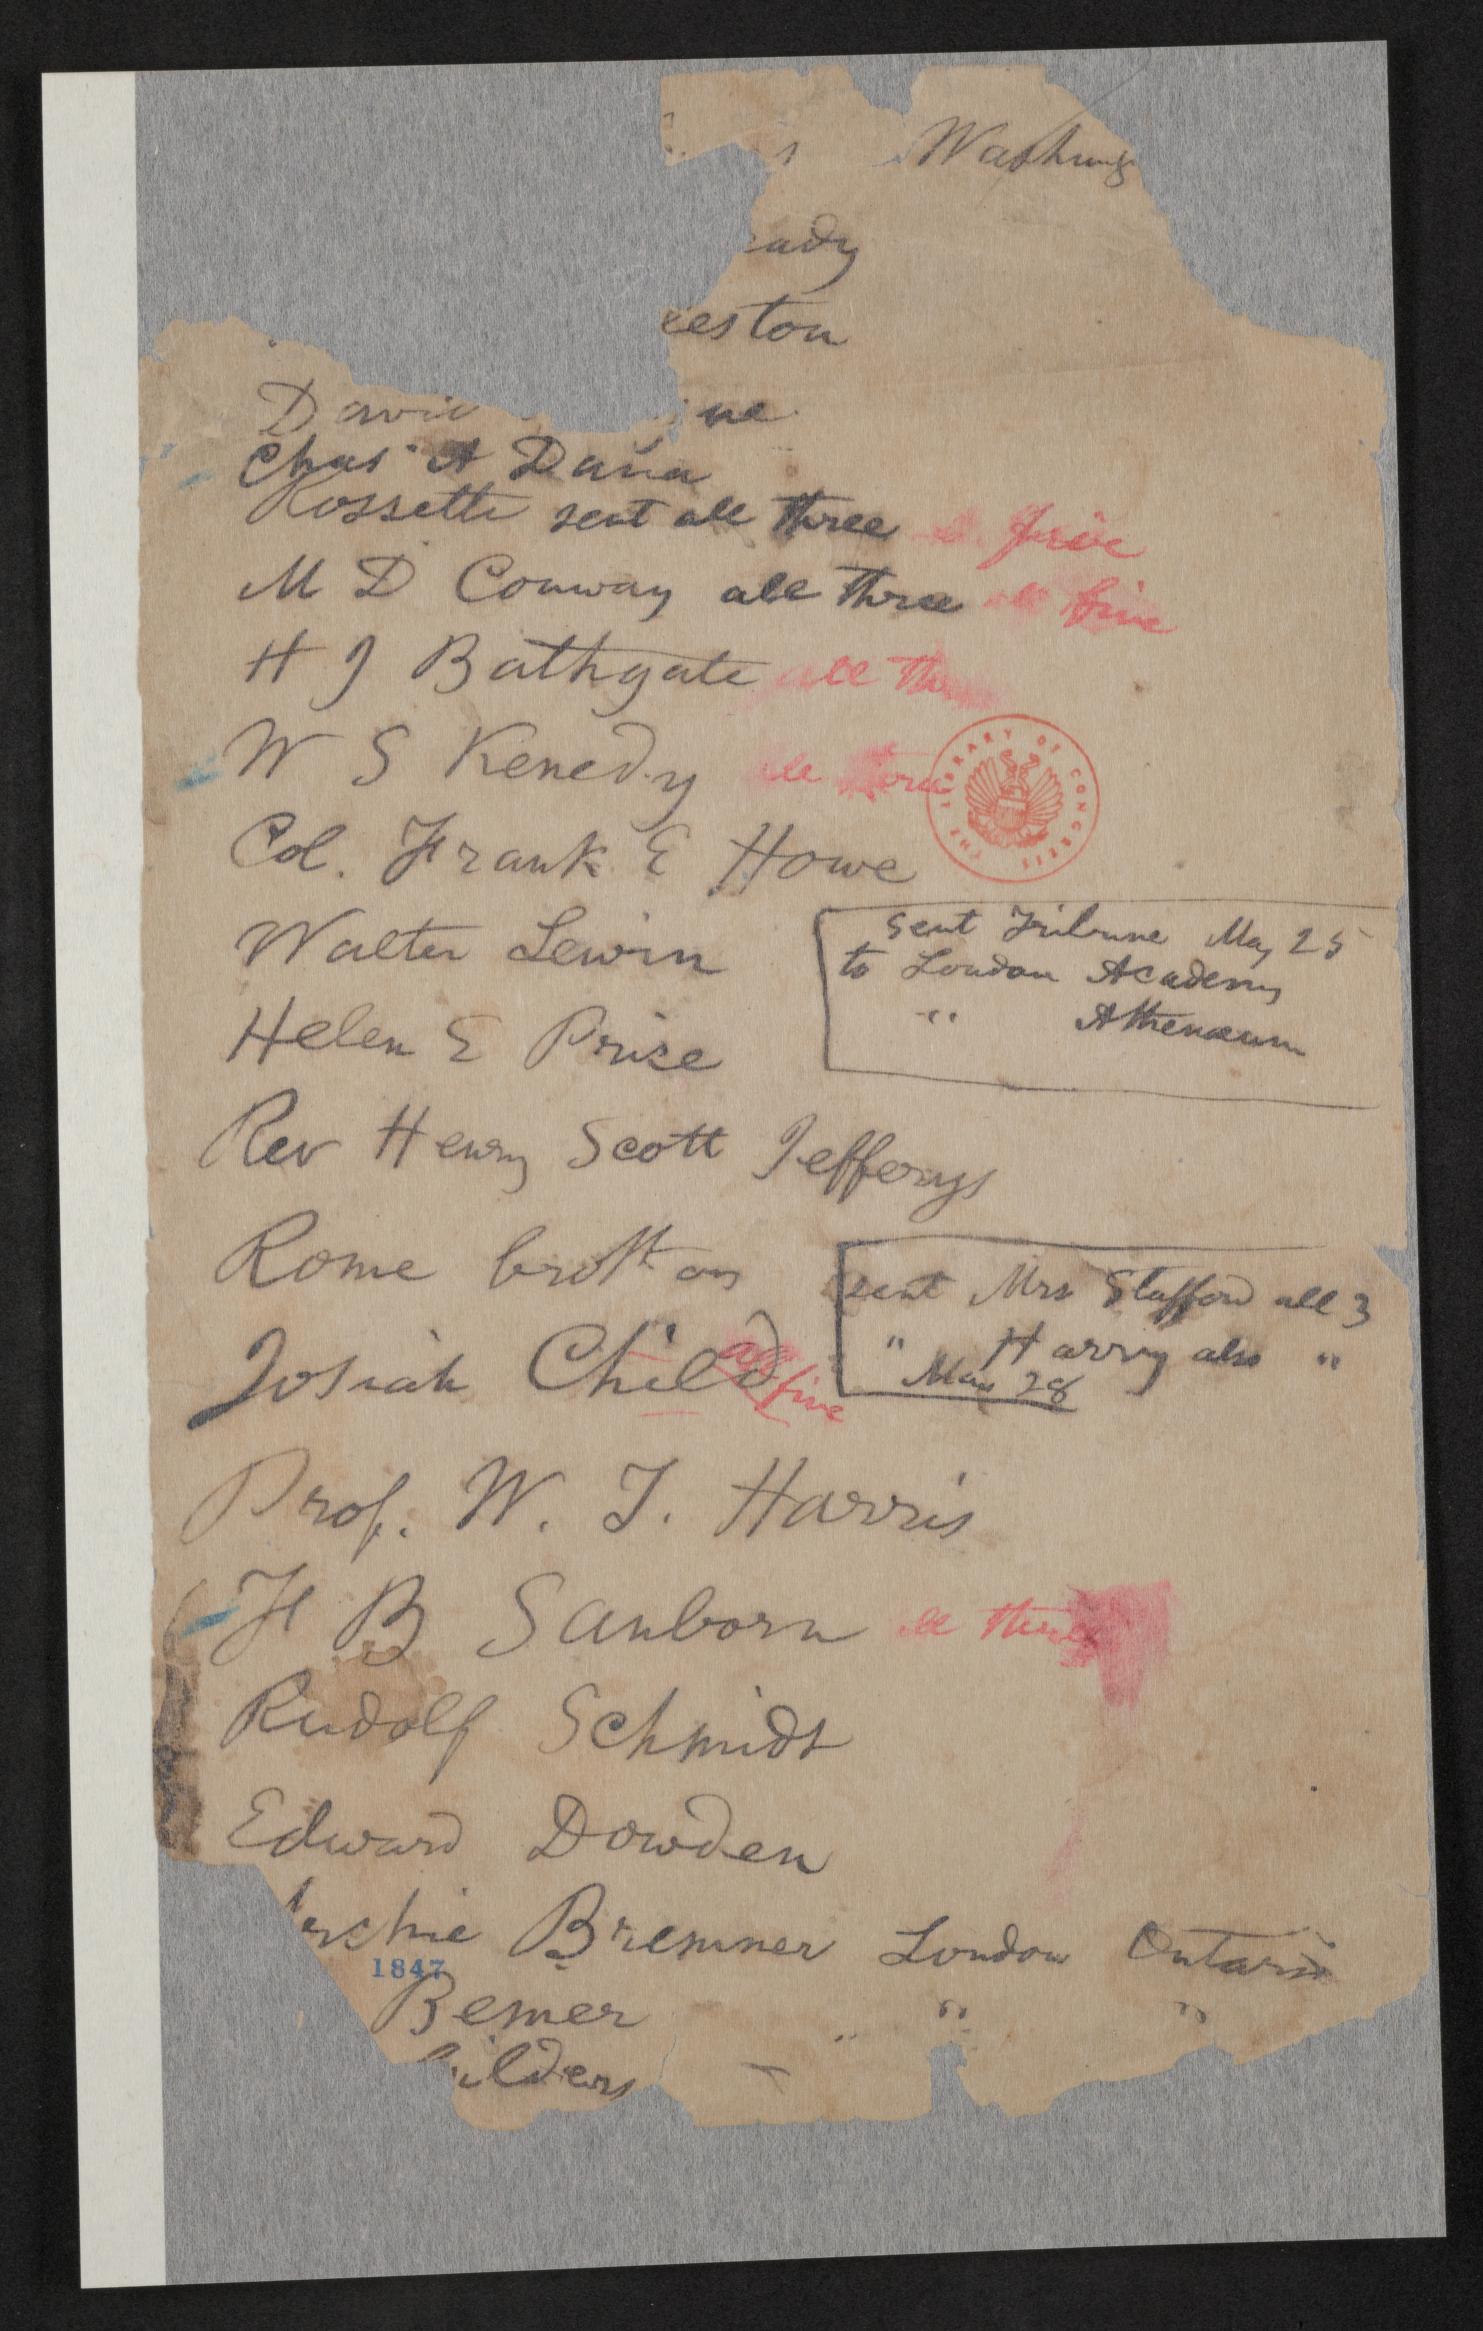 Washing
eady
eston
Davi ne
Chas A Dana
Rossetti sent all three all five
M D Conway all three all five
H J Bathgate all three
W S Kenedy all three
THE LIBRARY OF CONGRESS
Col. Frank E Howe
Walter Lewin
Sent Tribune May 25
to London Academy
" Athenæum
Helen E Price
Rev Henry Scott Jefferys
Rome brothers
sent Mrs Stafford all 3
" Harry also "
May 28
Josiah Child all five
Prof. W. T. Harris
F B Sanborn all three
Rudolf Schmidt
Edward Dowden
rchie Bremner London Ontario
1847
Bemer " "
ilders